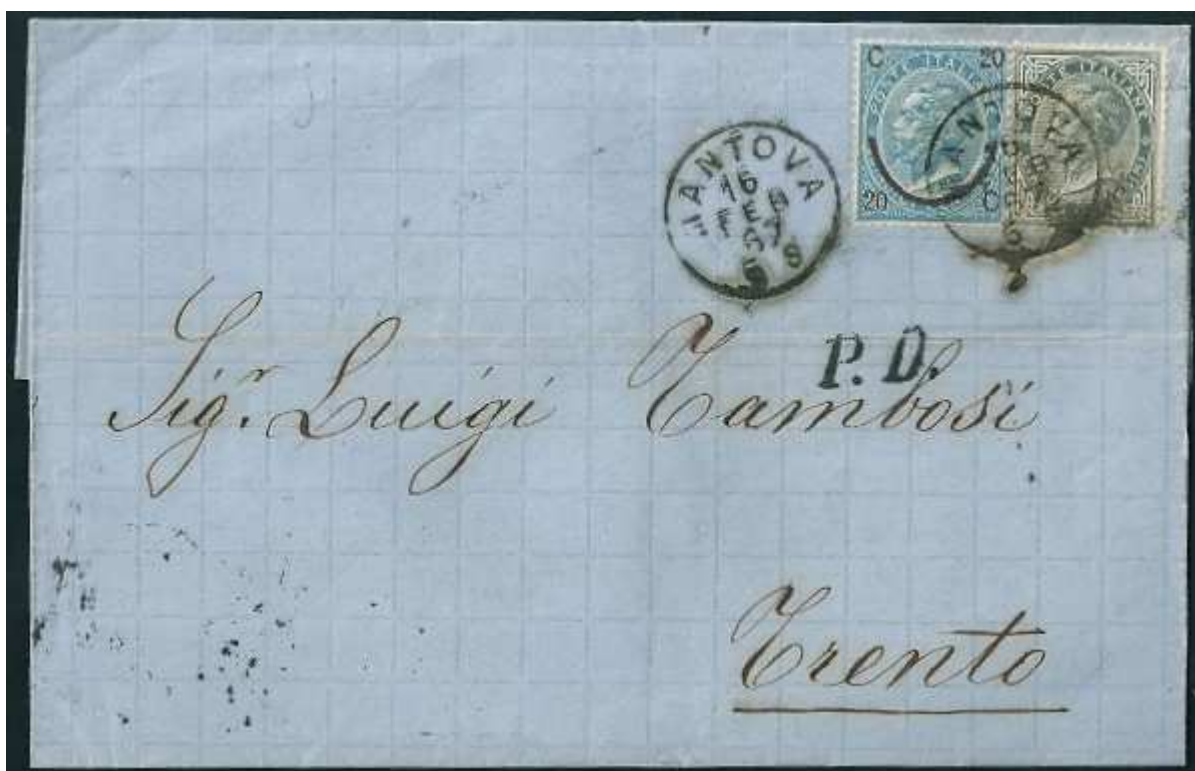 C 20
POSTE ITALIANE
20 C
POSTE ITALIANE
MANTOVA
P. D.
Sigr. Luigi Tambosi
Trento